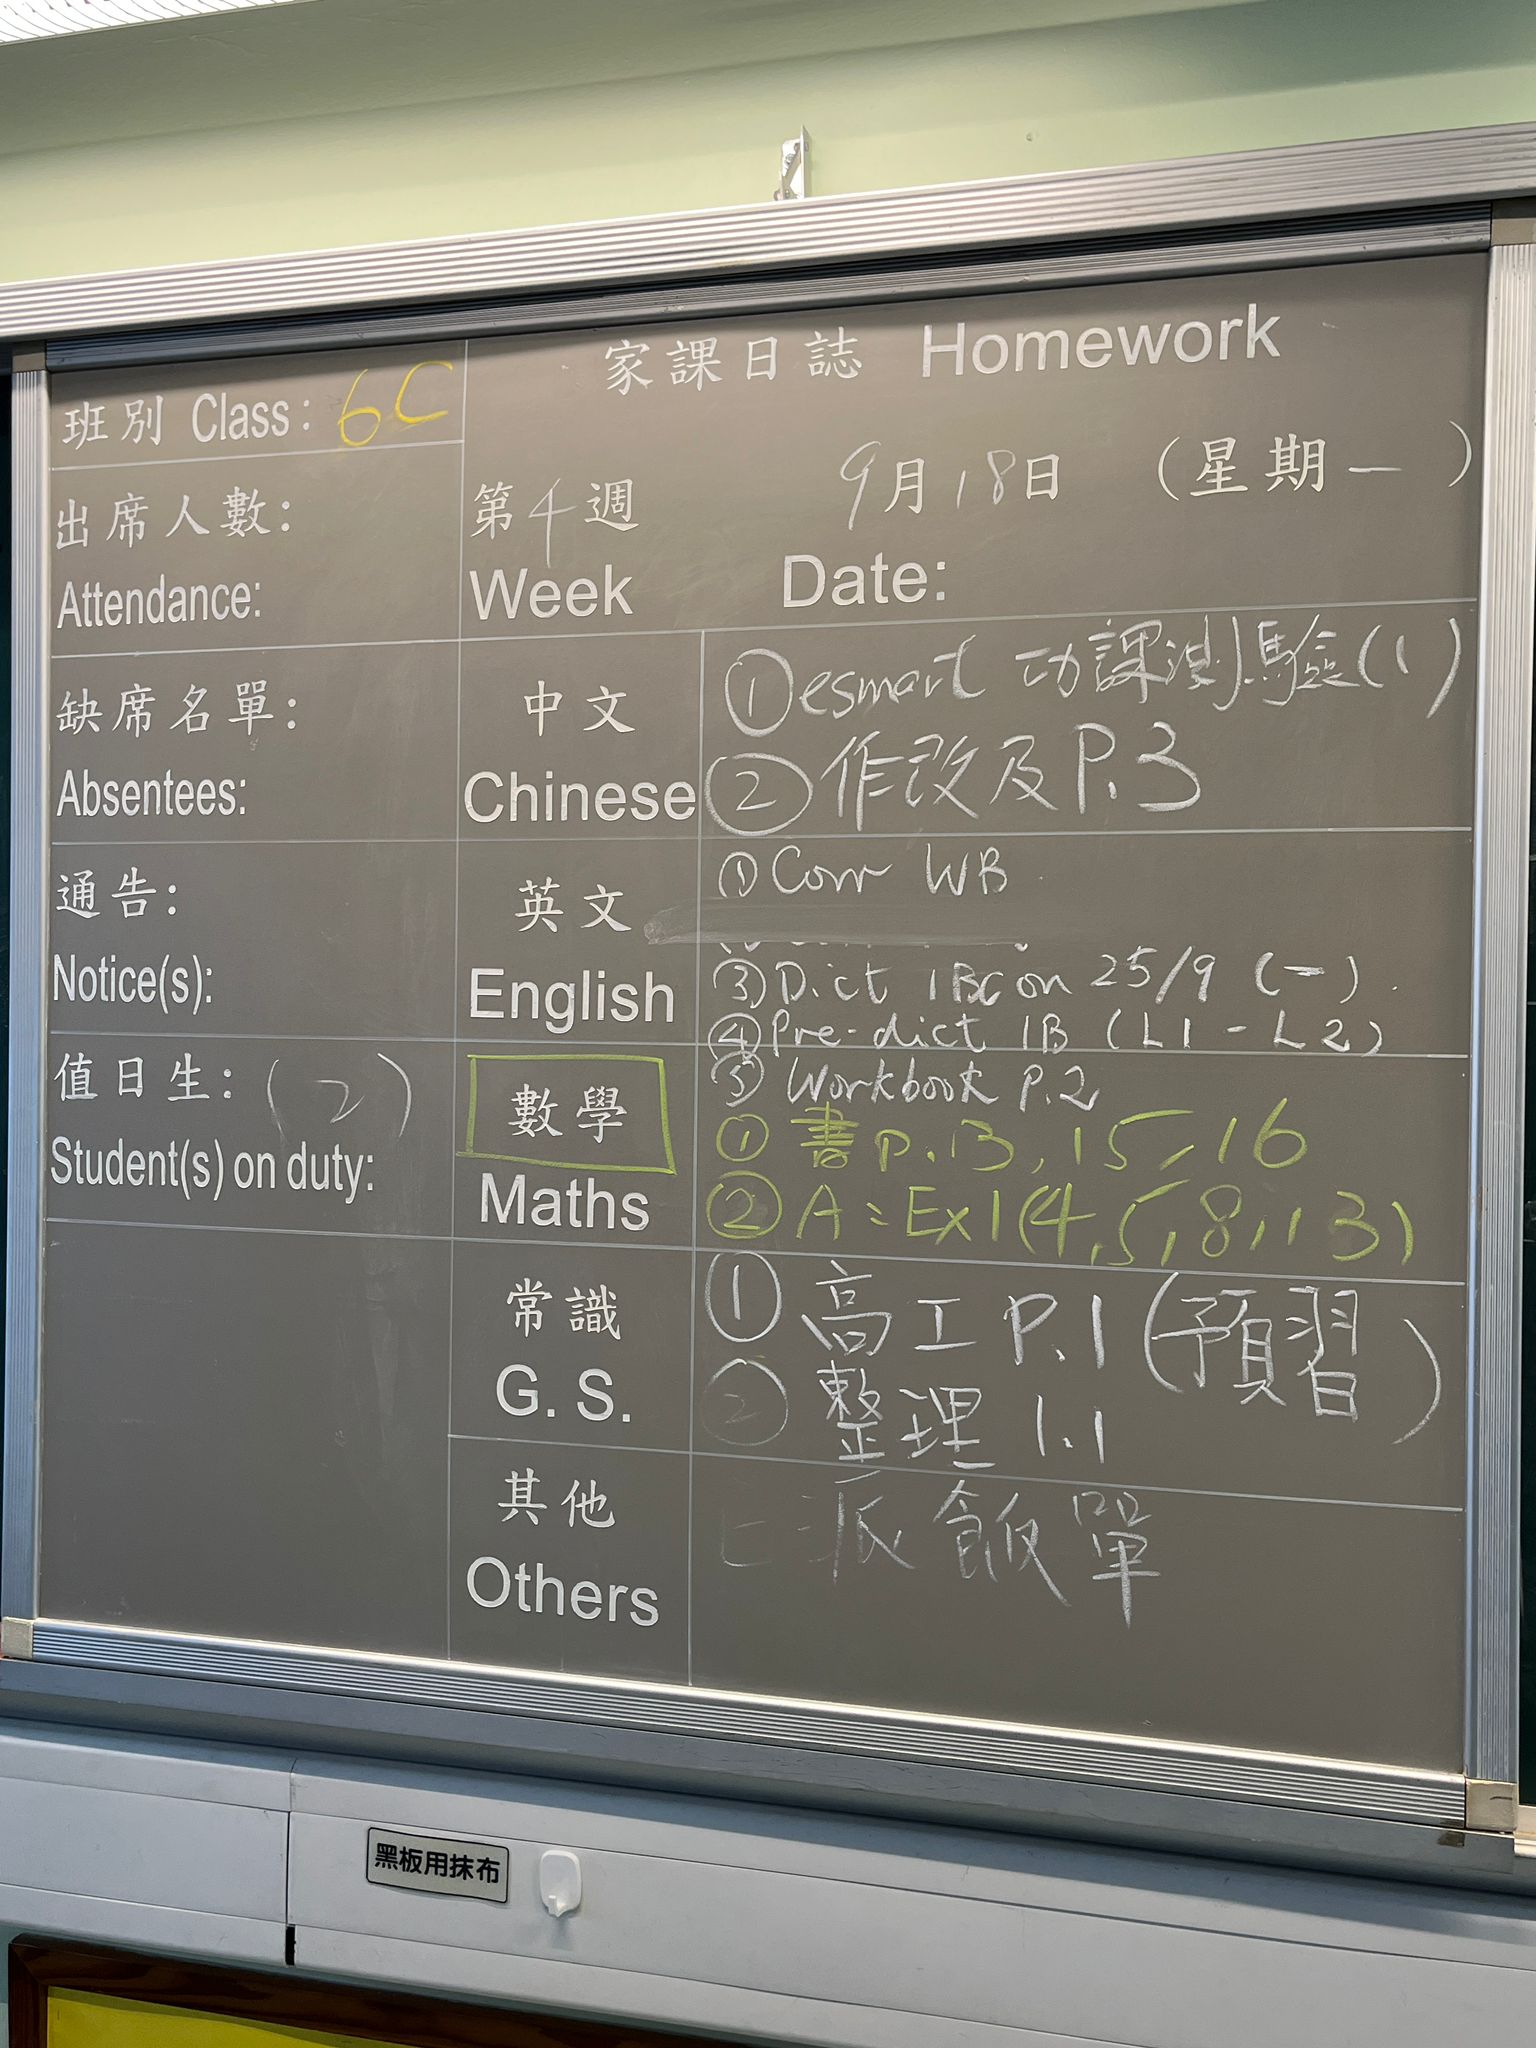 家課日誌 Homework
班別 Class: 6C
出席人數:
Attendance:
第4週
Week
9月18日 (星期一)
Date:
缺席名單:
Absentees:
中文
Chinese
①esmart 功課測驗(1)
②作改及P.3
通告:
Notice(s):
英文
English
①Corr WB
③Dict 1B on 25/9 (一).
④Pre-dict 1B (L1-L2)
⑤Workbook P.2
值日生: (2)
Student(s) on duty:
數學
Maths
①書P.13,15,16
②A:Ex1(4,5,8,13)
常識
G. S.
①高工P.1(預習)
②整理1.1
其他
Others
派飯單
黑板用抹布